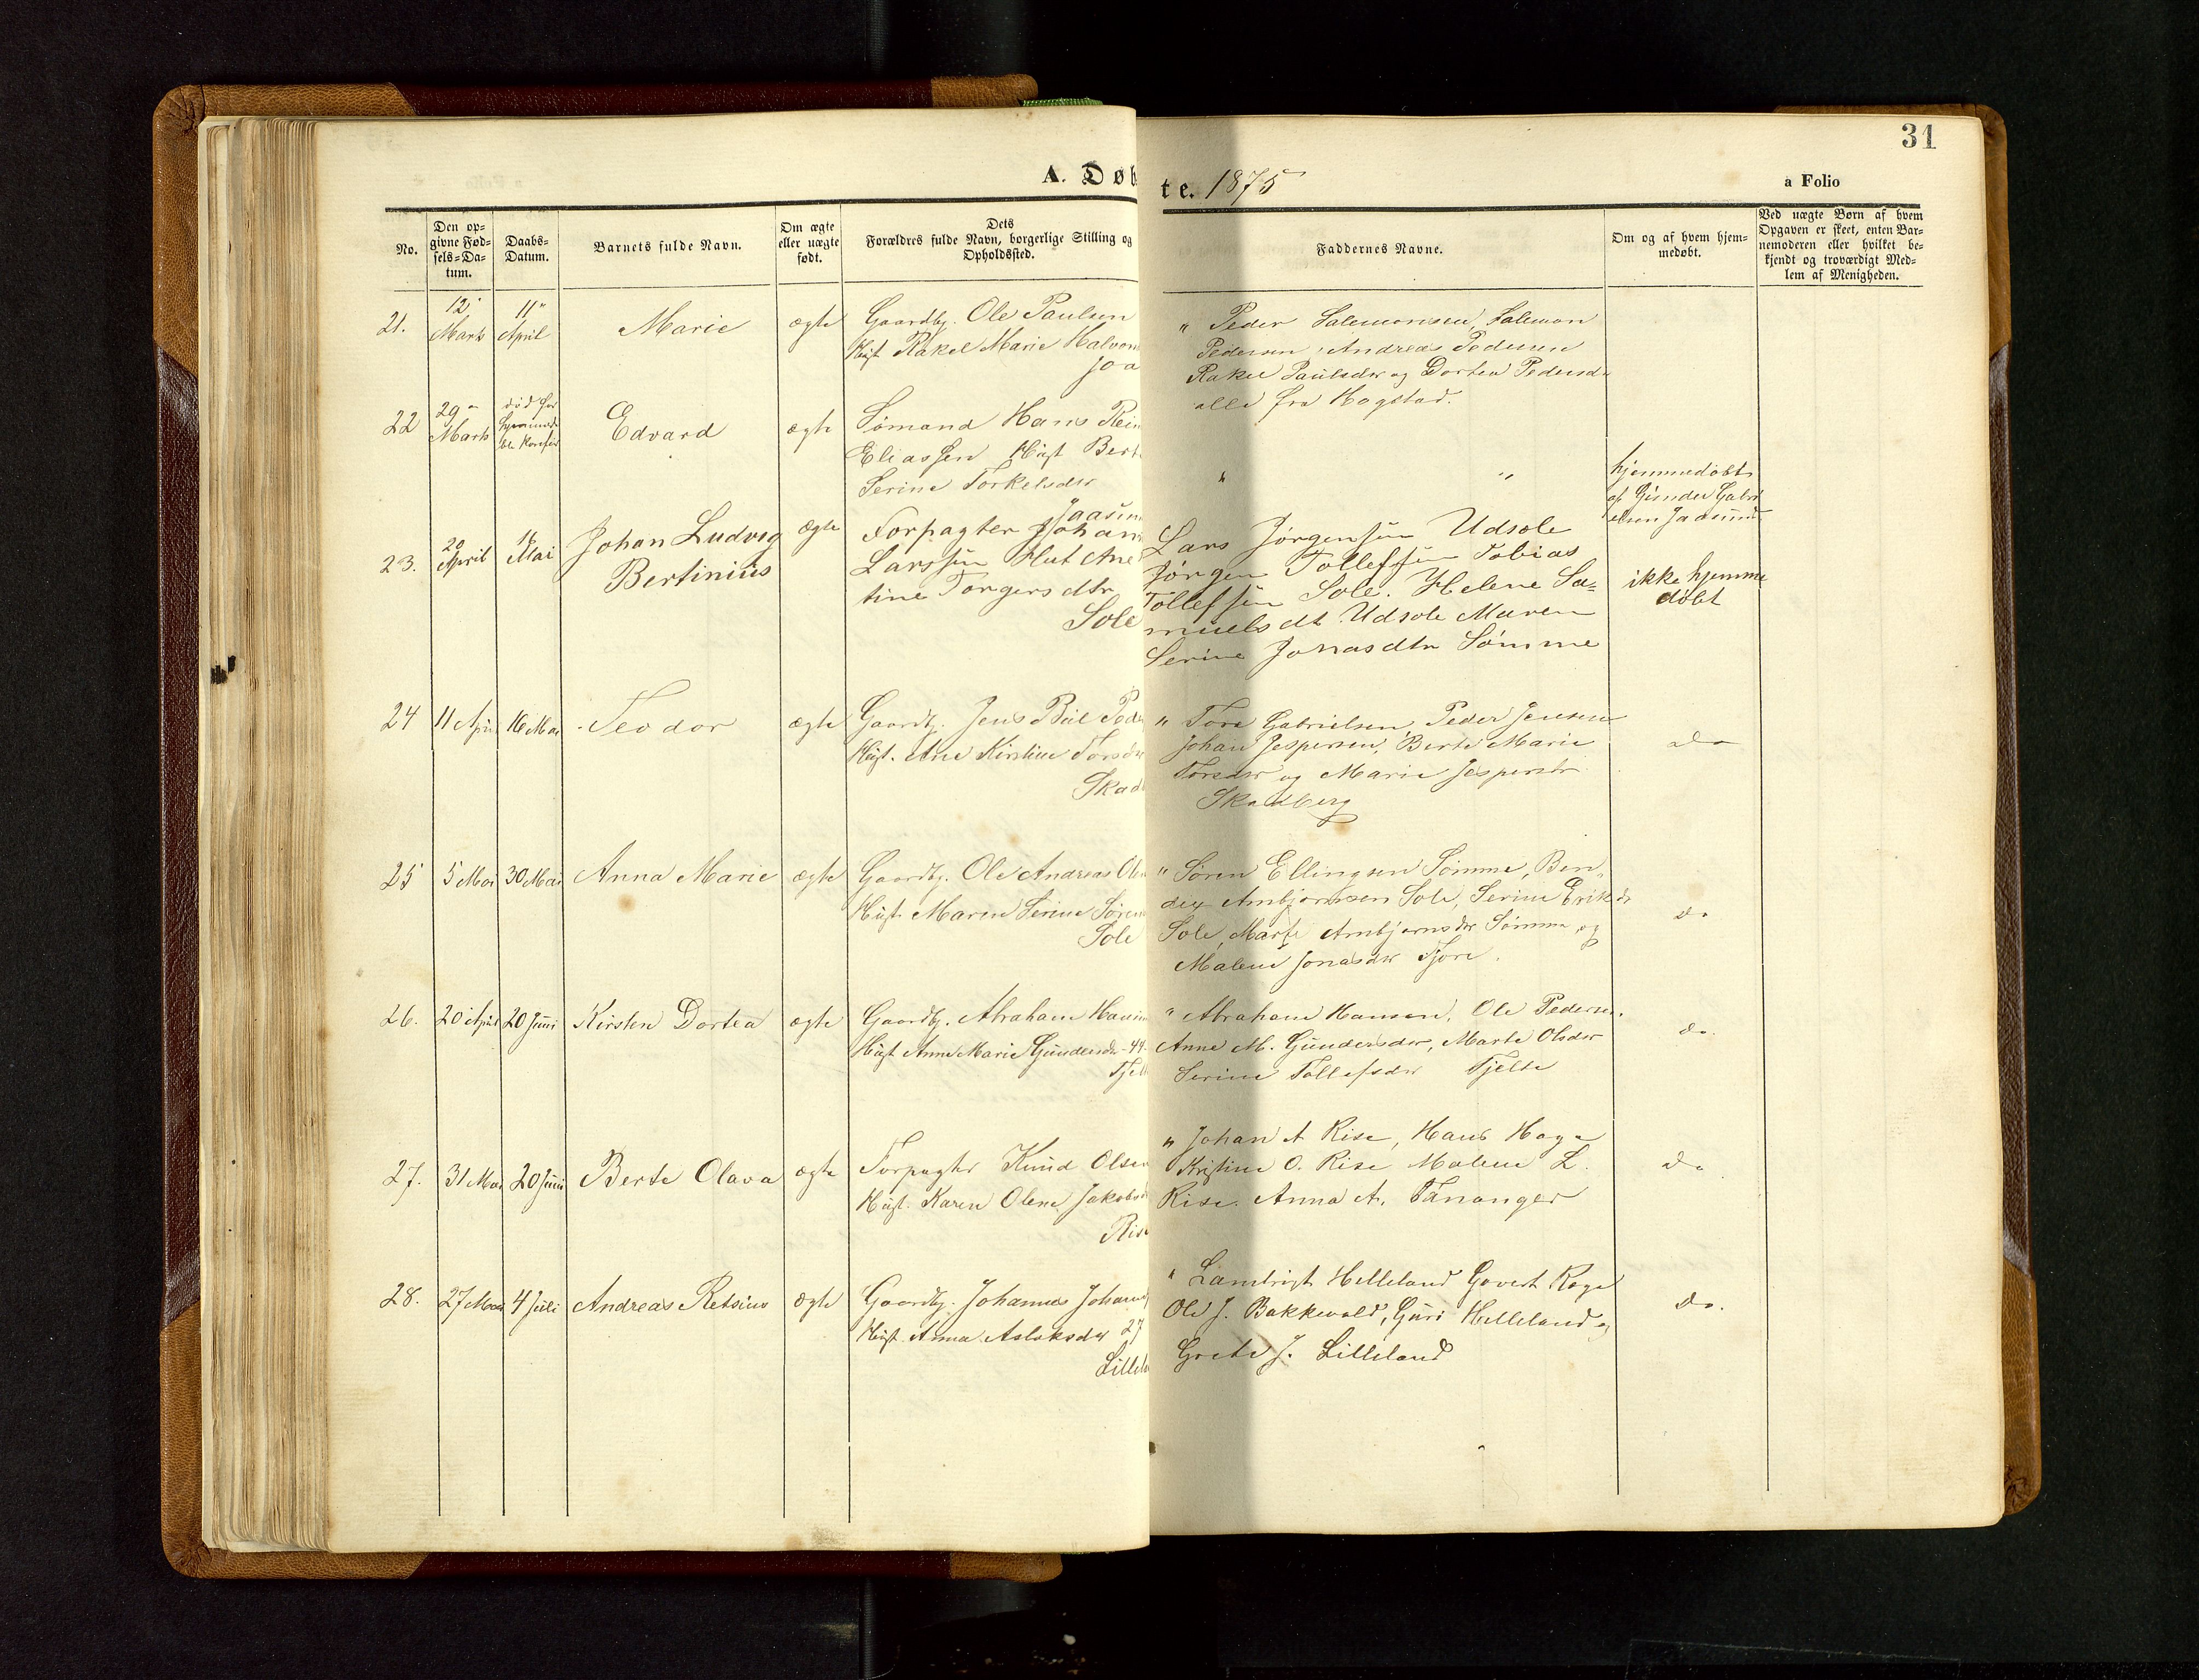 31
A. Døb
te. 1875
a Folio
No.
Den op-
givne Fød-
sels-Da-
tum.
Daabs-
Datum.
Barnets fulde Navn.
Om ægte
eller uægte
født.
Dets
Forældres fulde Navn, borgerlige Stilling og
Opholdssted.
Faddernes Navne.
Om og af hvem hjem-
medøbt.
Ved uægte Børn af hvem
Opgaven er skeet, enten Bar-
nemoderen eller hvilket be-
kjendt og troværdigt Med-
lem af Menigheden.
21.
12
Marts
11
April
Marie
ægte
Gaardbr. Ole Paulsen
Hust Rakel Marie Halvors
Joa
" Peder Salemonsen, Salemon
Pedersen, Andreas Pedersen
Rakel Paulsdr og Dortea Pedersd
alle fra Hogstad.
22
29
Marts
død før
Edvard
ægte
Sømand Hans Rein
Eliassen Hust Bert
Serine Torkelsdr
Jaasun
" "
hjemmedøbt
af Gunder Gabri
elsen Jaasund
23.
20
April
16
Mai
Johan Ludvig
Bertinius
ægte
Forpagter Johan
Larssen Hust Ane
tine Torgersdtr
Sole
Lars Jørgensen Udsole
Jørgen Tollefsen Tobias
Tollefsen Sole. Helene Sa=
muelsdt Udsole Maren
Serine Jonasdtr Sømme
ikke hjemme
døbt
24
11 April
16 Mai
Teodor
ægte
Gaardbr. Jens Bül Pede
Hust. Ane Kirstine Torsdr
Skad
" Tore Gabrielsen, Peder Jensen
Johan Jespersen, Berte Marie
Torsdr og Marie Jespersdr
Skadberg
do
25
5 Mai
30 Mai
Anna Marie
ægte
Gaardbr. Ole Andreas Ols
Hust. Maren Serine Søren
Sole
" Søren Ellingsen Sømme, Ben-
dix Ambjørnsen Sole, Serine Eriksdr
Sole, Marte Ambjørnsdr Sømme og
Malene Jonasdr Tjore.
do
26.
20 April
20 Juni
Kirsten Dortea
ægte
Gaardbr. Abraham Hansen
Hust Anne Marie Gundersdr 44
Tjelt
" Abraham Hansen, Ole Pedersen.
Anne M. Gundersdr, Marte Olsdr
Serine Tollefsdr Tjelte
do.
27.
31 Mai
20 Juni
Berte Olava
ægte
Forpagter Knud Olsen
Hust. Karen Olene Jakobsd
Rise
" Johan A Rise, Hans Haga
Kristine O. Rise Malene L.
Rise. Anna A. Tananger
do
28.
27 Mai
4 Juli
Andreas Retsius
ægte
Gaardbr. Johannes Johann
Hust. Anna Aslaksdr 27
Lillela
" Lambrigt Helleland Govert Rege
Ole J. Bakkevold, Guri Helleland og
Grete J. Lilleland
do.